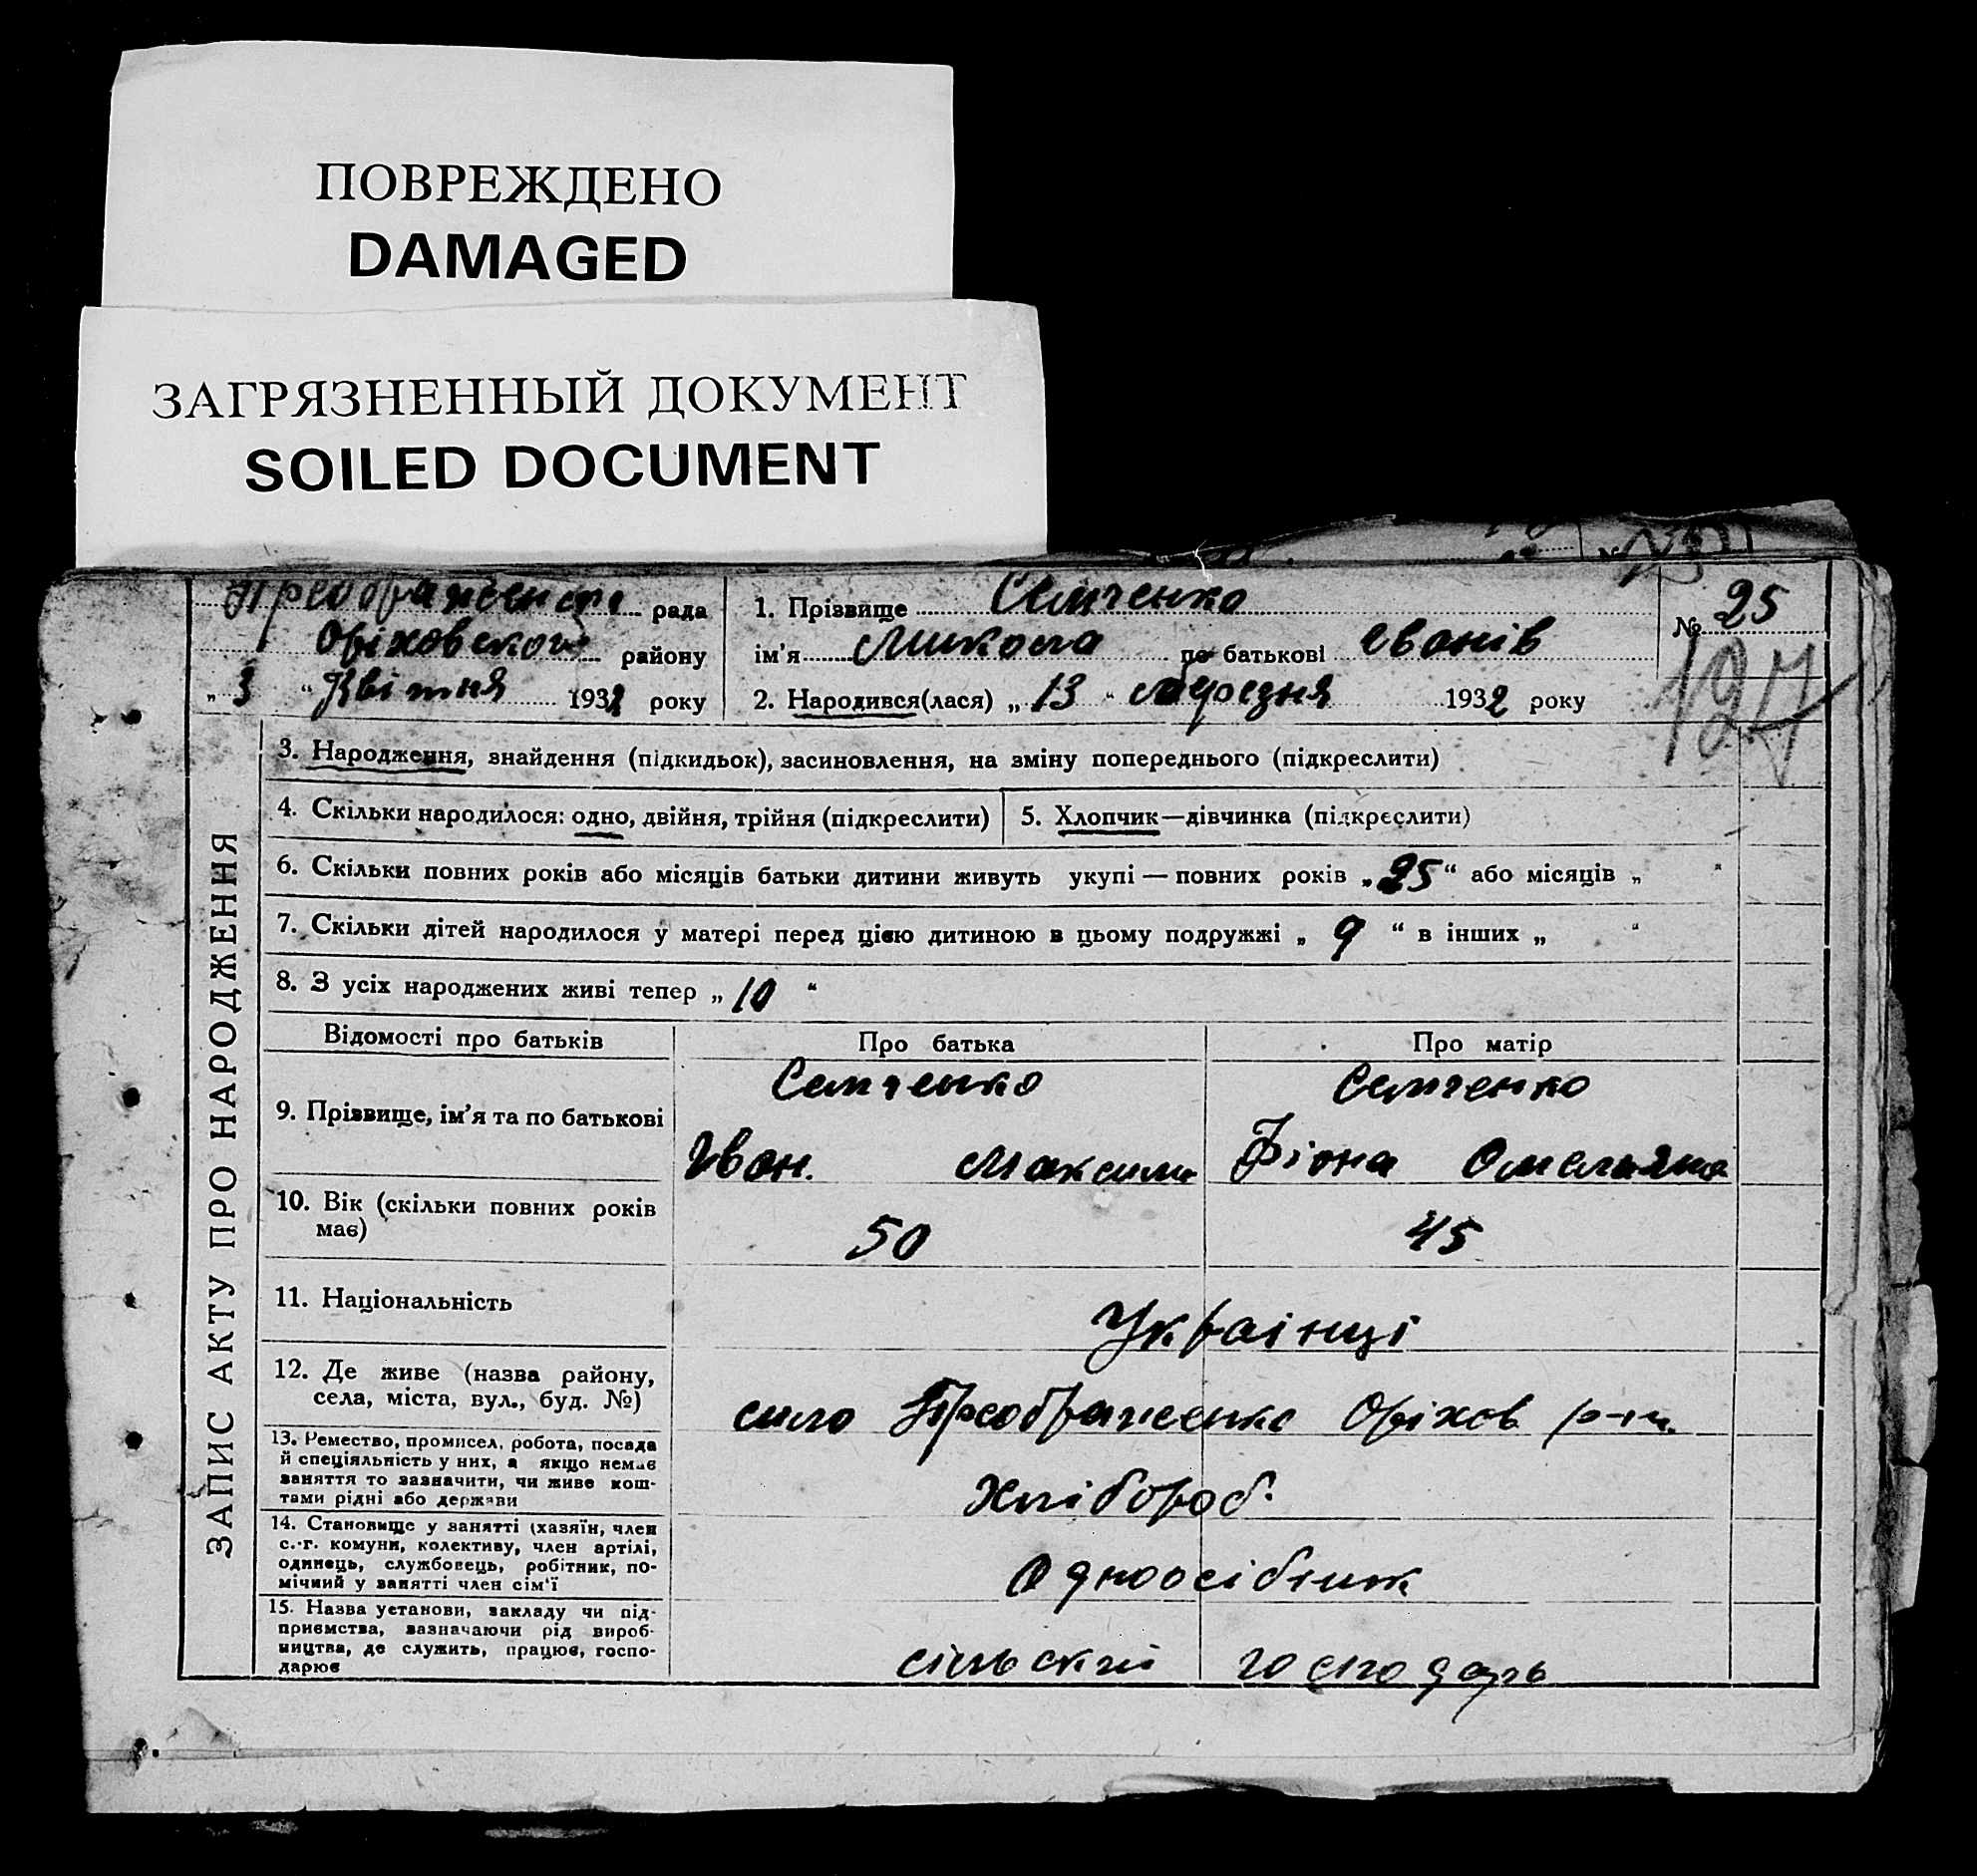 ПОВРЕЖДЕНО
DAMAGED
ЗАГРЯЗНЕННЫЙ ДОКУМЕНТ
SOILED DOCUMENT
ЗАПИС АКТУ ПРО НАРОДЖЕННЯ
рада
Оріховского району
„ 3 “ Квітня 1932 року
1. Прізвище Семченко
ім’я Микола по батькові Іванів
2. Народився(лася) „ 13 “ березня 1932 року
№ 25
127
3. Народження, знайдення (підкидьок), засиновлення, на зміну попереднього (підкреслити)
4. Скільки народилося: одно, двійня, трійня (підкреслити)
5. Хлопчик—дівчинка (підкреслити)
6. Скільки повних років або місяців батьки дитини живуть укупі — повних років „ 25 “ або місяців „ “
7. Скільки дітей народилося у матері перед цією дитиною в цьому подружжі „ 9 “ в інших „ “
8. З усіх народжених живі тепер „ 10 “
Відомості про батьків
Про батька
Про матір
9. Прізвище, ім’я та по батькові
Семченко
Іван. Максим
Семченко
Фіона
10. Вік (скільки повних років
має)
50
45
11. Національність
Украінці
12. Де живе (назва району,
села, міста, вул., буд. №)
село Преображенко Оріхов р-н.
13. Ремество, промисел, робота, посада
й спеціяльність у них, а якщо немає
заняття то зазначити, чи живе кош-
тами рідні або держави
Хлібороб.
14. Становище у занятті (хазяїн, член
с.-г. комуни, колективу, член артілі,
одинець, службовець, робітник, по-
мічний у занятті член сім’ї
Одноосібник
15. Назва установи, закладу чи під-
приємства, зазначаючи рід вироб-
ництва, де служить, працює, госпо-
дарює
сільский господарь